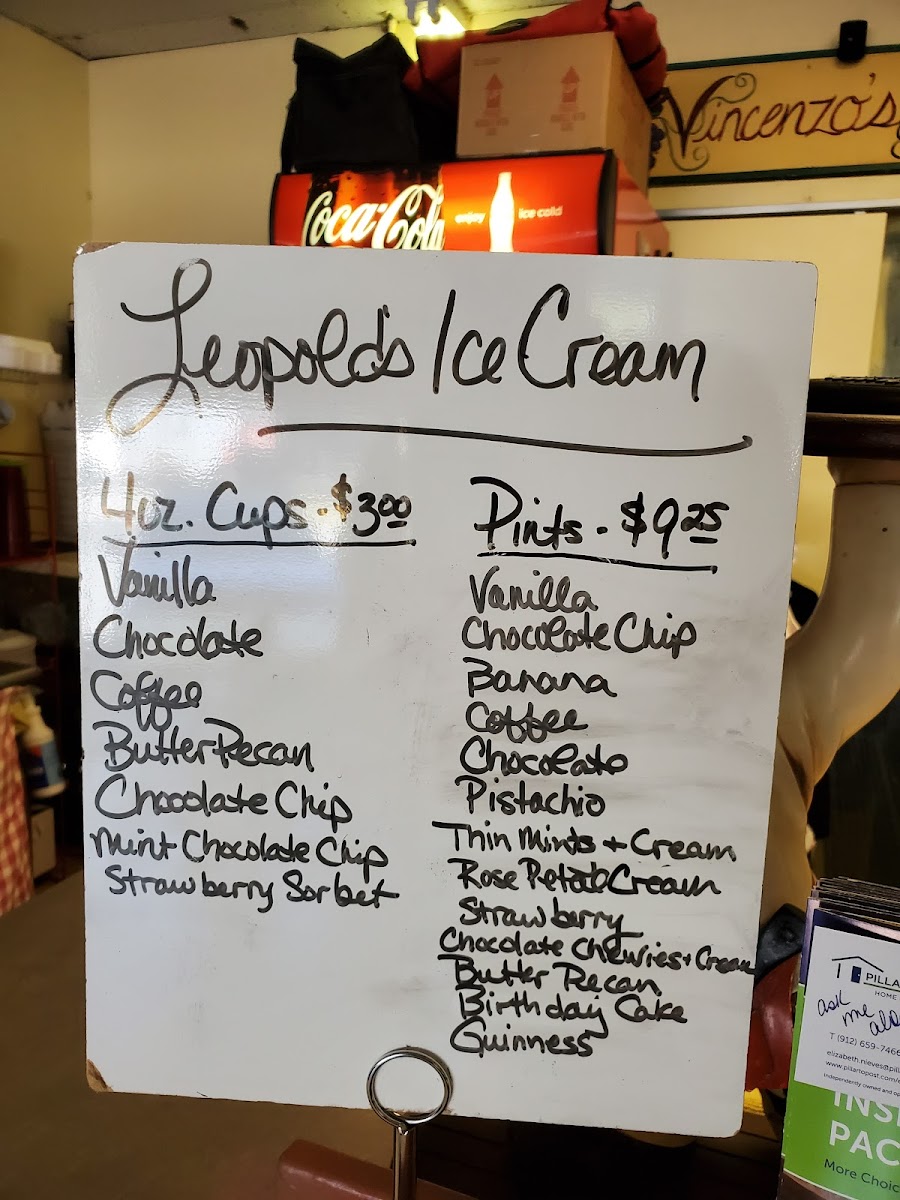 Vincenzo's
Coca-Cola
enjoy
ice cold
Leopold's Ice Cream
4oz. Cups - $3.00
Vainilla
Chocolate
Coffee
Butter Pecan
Chocolate Chip
Mint Chocolate Chip
Strawberry Sorbet
Pints - $9.25
Vanilla
Chocolate Chip
Banana
Coffee
Chocolate
Pistachio
Thin Mints + Cream
Rose Petal Cream
Strawberry
Chocolate Chewies + Cream
Butter Pecan
Birthday Cake
Guinness
PILLA
HOME
ask
me
T (912) 659-7466
elizabeth.nieves@pil
www.pillartopost.com/e
Independently owned and op
INS
PAC
More Choic